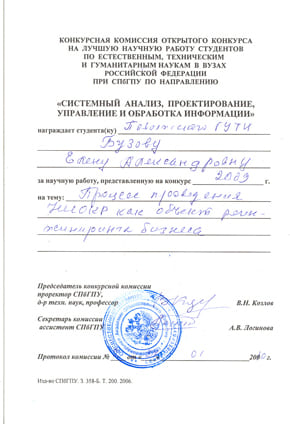 КОНКУРСНАЯ КОМИССИЯ ОТКРЫТОГО КОНКУРСА
НА ЛУЧШУЮ НАУЧНУЮ РАБОТУ СТУДЕНТОВ
ПО ЕСТЕСТВЕННЫМ, ТЕХНИЧЕСКИМ
И ГУМАНИТАРНЫМ НАУКАМ В ВУЗАХ
РОССИЙСКОЙ ФЕДЕРАЦИИ
ПРИ СПбГПУ ПО НАПРАВЛЕНИЮ
«СИСТЕМНЫЙ АНАЛИЗ, ПРОЕКТИРОВАНИЕ,
УПРАВЛЕНИЕ И ОБРАБОТКА ИНФОРМАЦИИ»
награждает студента(ку)
Бузову
Елену Александровну
за научную работу, представленную на конкурс 2009 г.
на тему: Процесс проведения
НИОКР как объект реин-
жиниринга бизнеса
Председатель конкурсной комиссии
проректор СПбГПУ,
д-р техн. наук, профессор В.Н. Козлов
Секретарь комиссии
ассистент СПбГПУ А.В. Логинова
Протокол комиссии № от 01 г.
Изд-во СПбГПУ. З. 358-Б. Т. 200. 2006.